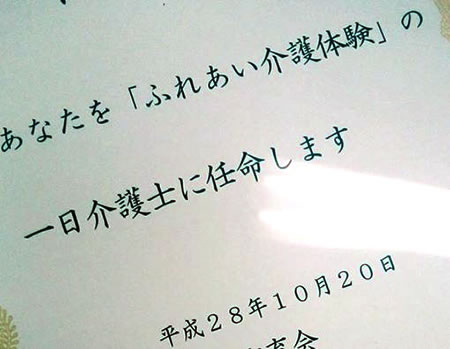 あなたを「ふれあい介護体験」の
一日介護士に任命します
平成28年10月20日
育会